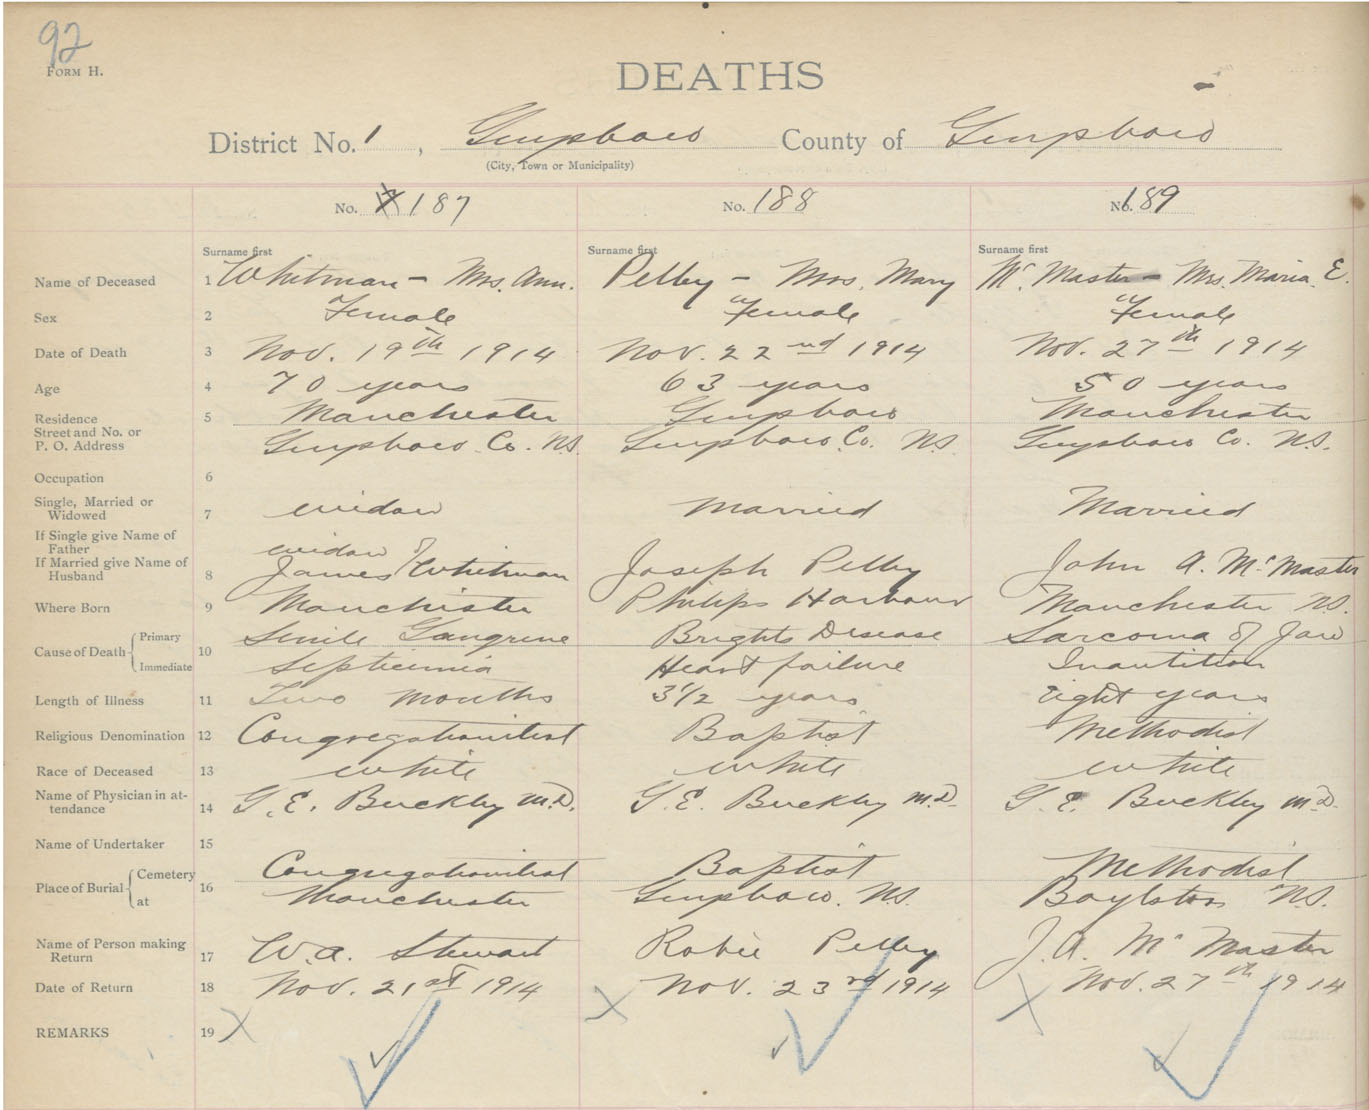 92
FORM H.
DEATHS
District No. 1, Guysboro County of Guysboro
(City, Town or Municipality)
No. 187 No. 188 No. 189
Surname first Surname first Surname first
Name of Deceased 1 Whitman - Mrs. Ann. Pelby - Mrs. Mary Mc Master - Mrs. Maria E.
Sex 2 Female Female Female
Date of Death 3 Nov. 19th 1914 Nov. 22nd 1914 Nov. 27th 1914
Age 4 70 years 63 years 50 years
Residence 5 Manchester Guysboro Manchester
Street and No. or
P. O. Address Guysboro Co. N.S. Guysboro Co. N.S. Guysboro Co. N.S.
Occupation 6
Single, Married or
Widowed 7 widow Married Married
If Single give Name of
Father widow of
If Married give Name of
Husband 8 James Whitman Joseph Pelby John A. Mc Master
Where Born 9 Manchester Philips Harbour Manchester N.S.
Cause of Death 10 Primary Senile Gangrene Brights Disease Sarcoma of Jaw
Immediate Septicemia Heart failure Inanition
Length of Illness 11 Two months 3 1/2 years eight years
Religious Denomination 12 Congregationilist Baptist Methodist
Race of Deceased 13 white white white
Name of Physician in at-
tendance 14 G. E. Buckley M.D. G. E. Buckley M.D. G. E. Buckley M.D.
Name of Undertaker 15
Place of Burial 16 Cemetery Congregationilist Baptist Methodist
at Manchester Guysboro. N.S. Boylston N.S.
Name of Person making
Return 17 W. A. Stewart Robie Pelby J. A. Mc Master
Date of Return 18 Nov. 21st 1914 Nov. 23rd 1914 Nov. 27th 1914
REMARKS 19